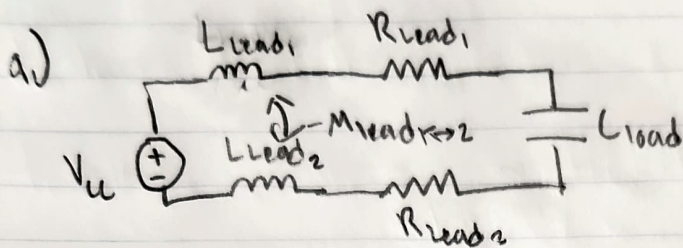 a.)
Llead1 Rlead1
Mlead1↔2
Llead2
Cload
+
-
Rlead2